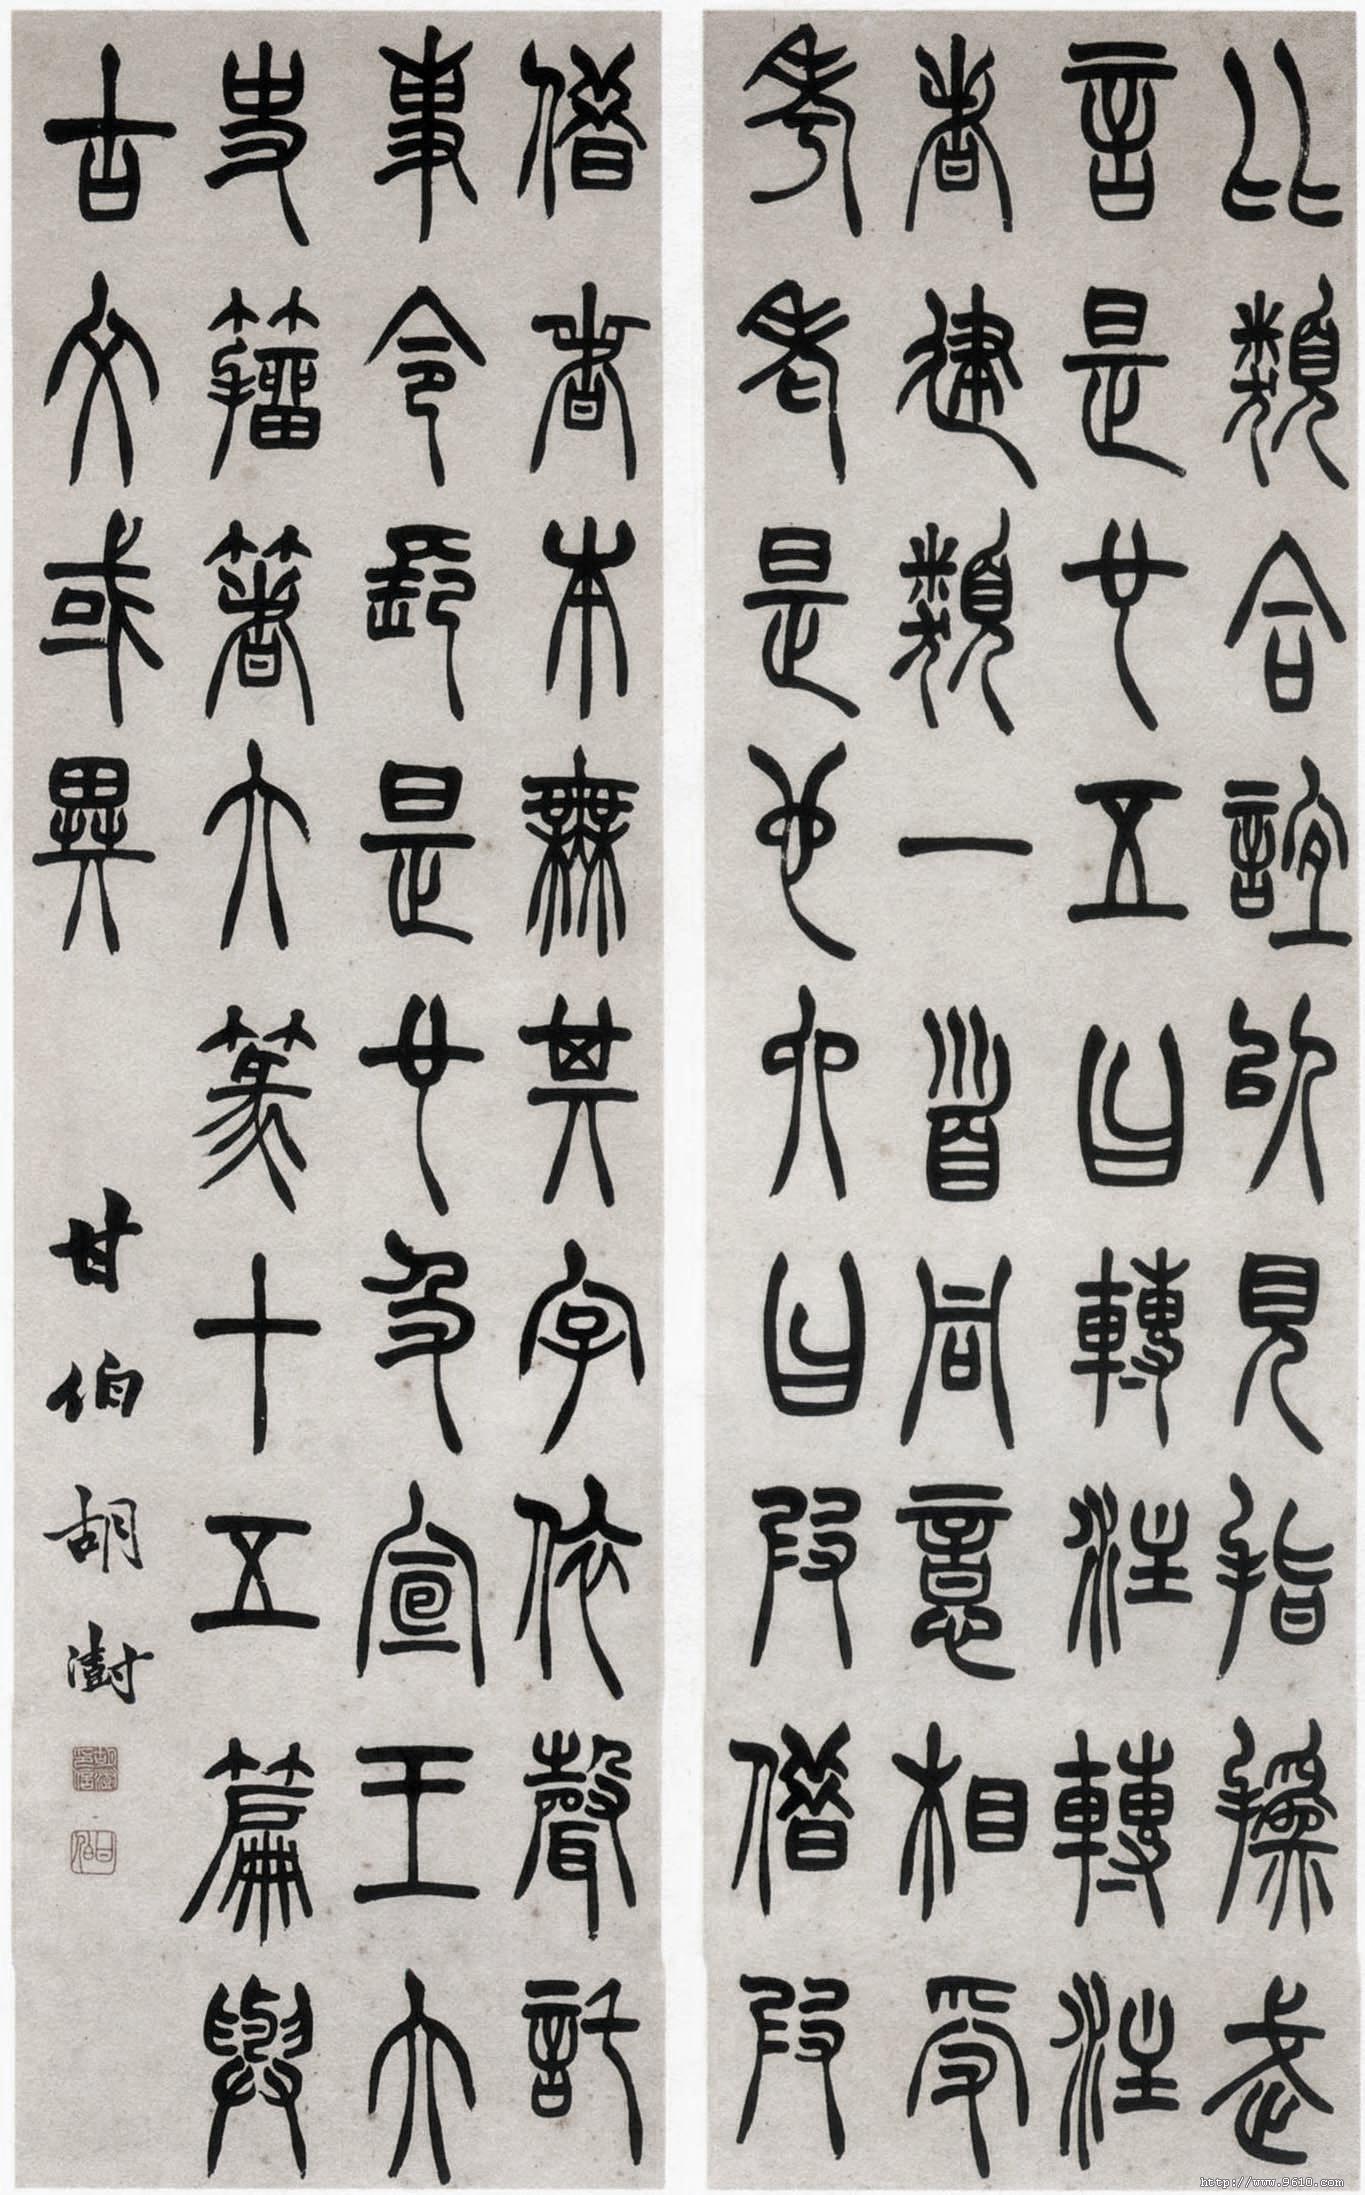 比類合誼以見指撝武
言是也五曰轉注轉注
者建類一首同意相受
考老是也六曰叚借叚
借者本無其字依聲託
事令長是也及宣王大
史籀著大篆十五篇與
古文或異
甘伯胡澍
http://www.9610.com